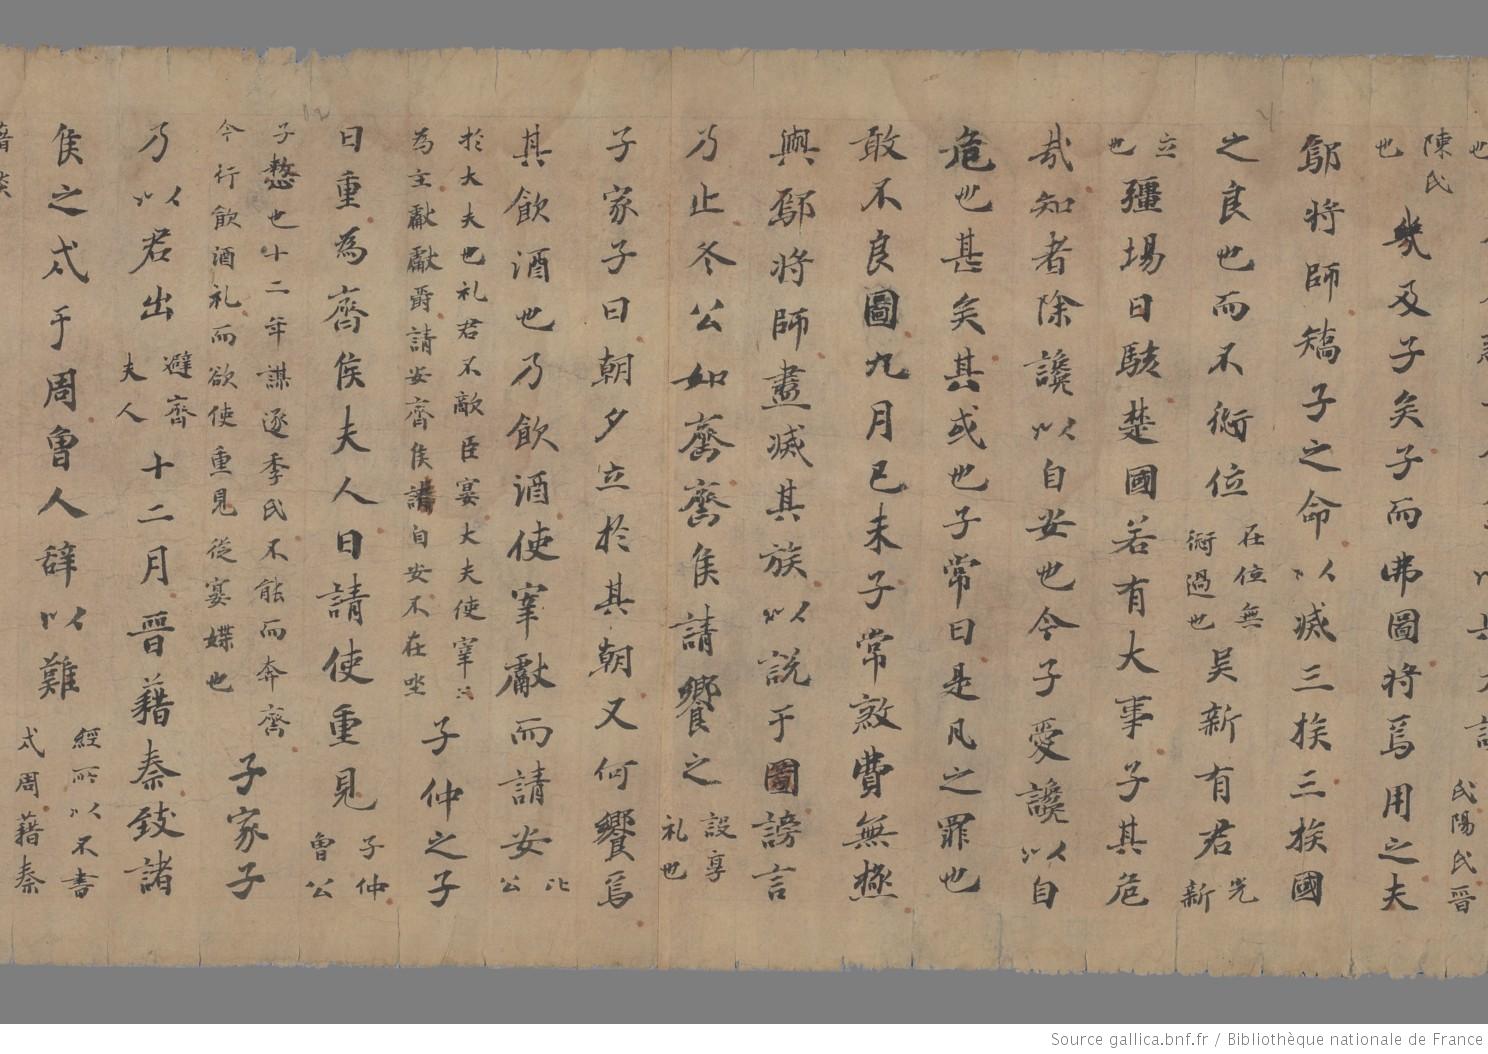 氏陽氏晉
陳氏
也幾及子矣子而弗圖將焉用之夫
鄢將師矯子之命以滅三族三族國
之良也而不衍位
在位無
衍過也
吴新有君
光
新
立
也
彊埸日駭楚國若有大事子其危
㢤知者除讒以自安也今子愛讒以自
危也甚矣其或也子常曰是凡之罪也
敢不良圖九月己未子常煞費無極
與鄢將師盡滅其族以說于國謗言
乃止冬公如齊齊侯請饗之
設享
礼也
子家子曰朝夕立於其朝又何饗焉
其飲酒也乃飲酒使宰獻而請安
比
公
於大夫也礼君不敵臣宴大夫使宰
為主獻獻爵請安齊侯請自安不在坐
子仲之子
曰重為齊侯夫人曰請使重見
子仲
魯公
子憗也十二年謀逐季氏不能而奔齊
今行飲酒礼而欲使重見從宴媟也
子家子
乃以君出
避齊
夫人
十二月晉藉秦致諸
侯之戍于周魯人辭以難
經所以不書
戍周藉秦
Source gallica.bnf.fr / Bibliothèque nationale de France